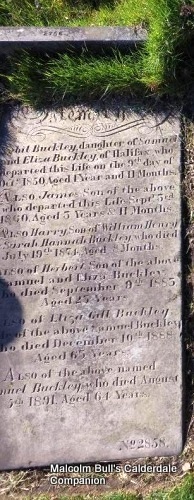 In Memory of
Sybil Buckley, daughter of Samuel
and Eliza Buckley, of Halifax, who
departed this Life on the 9th day of
1850 Aged 1 Year and 11 Months.
Also James Son of the above
who departed this Life Septr 3rd
1860, Aged 3 Years & 11 Months.
Also Harry, Son of William Henry
& Sarah Hannah Buckley, who died
July 19th 1874, Aged Months.
Also of Herbert Son of the above
Samuel and Eliza Buckley,
who died September 9th 1885
Aged 23 Years.
Also of Eliza Gill Buckley
of the above named Samuel Buckley,
who died December 10th 1888
Aged 63 Years.
Also of the above named
Samuel Buckley, who died August
5th 1891, Aged 64 Years.
No 2858.
Malcolm Bull's Calderdale
Companion